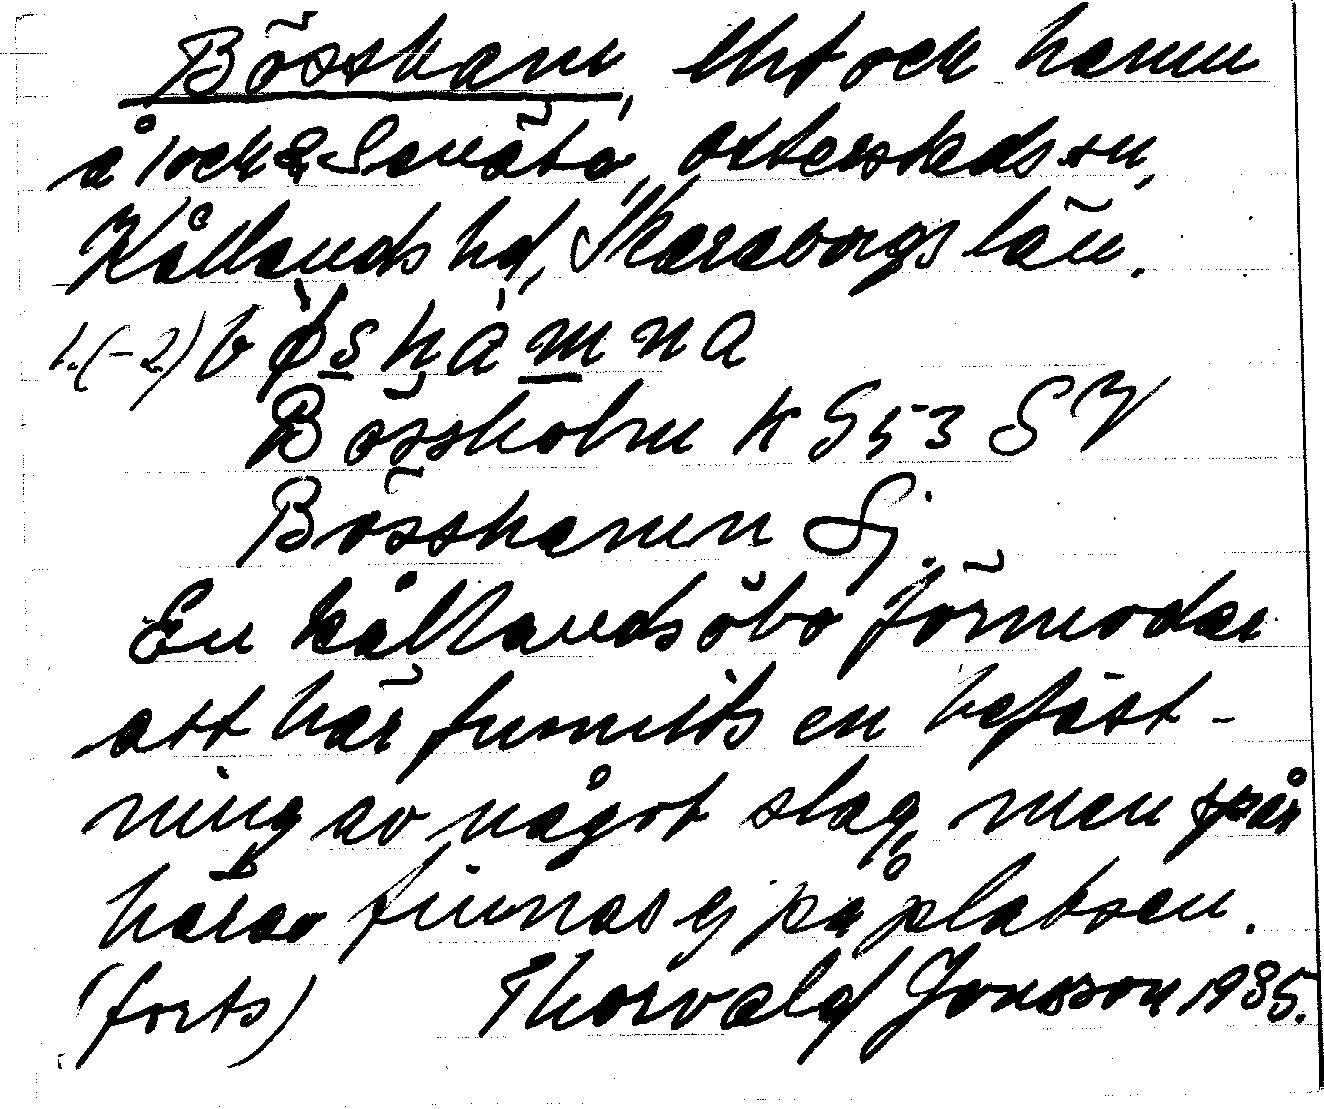 Bösshamn, lht och hamn
å 1och2 Sanäbo, Otterstads sn,
Kållands hd, Skaraborgs län.
1.(-2) bøshamna
Bössholm K G5 53 SV
Bösshamn Sj.
En kållandsöbo förmodar
att här funnits en befäst-
ning av något slag, men spår
härav finnas ej på platsen.
(forts) Thorvald Jonsson 1935.